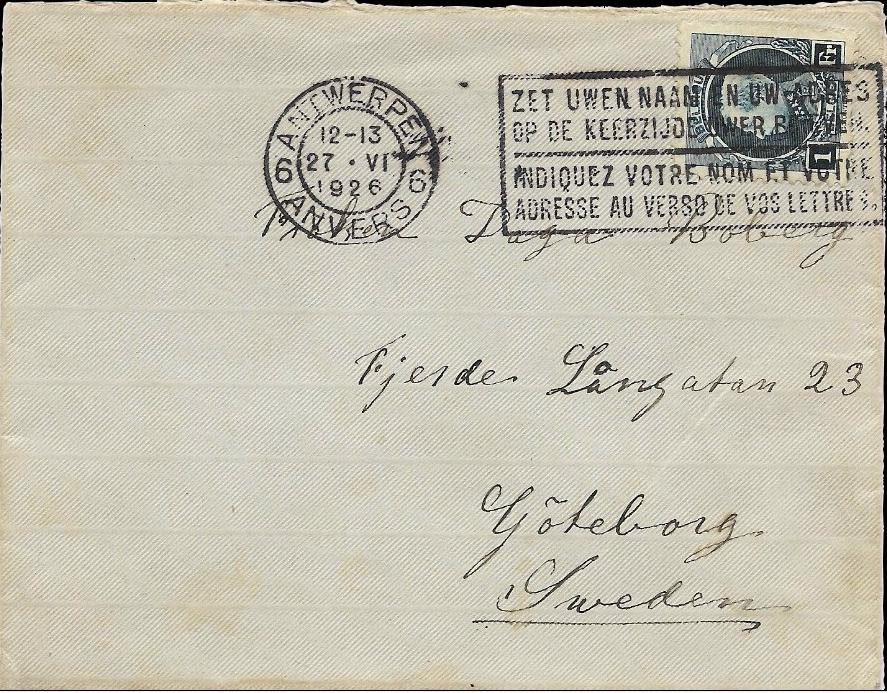 ANTWERPEN
12-13
27 · VI
1926
6 6
ANVERS
ZET UWEN NAAM EN UW ADRES
OP DE KEERZIJDE UWER BRIEVEN.
INDIQUEZ VOTRE NOM ET VOTRE
ADRESSE AU VERSO DE VOS LETTRES.
1 Fr
Boberg
Fjerde Långatan 23
Göteborg
Sweden